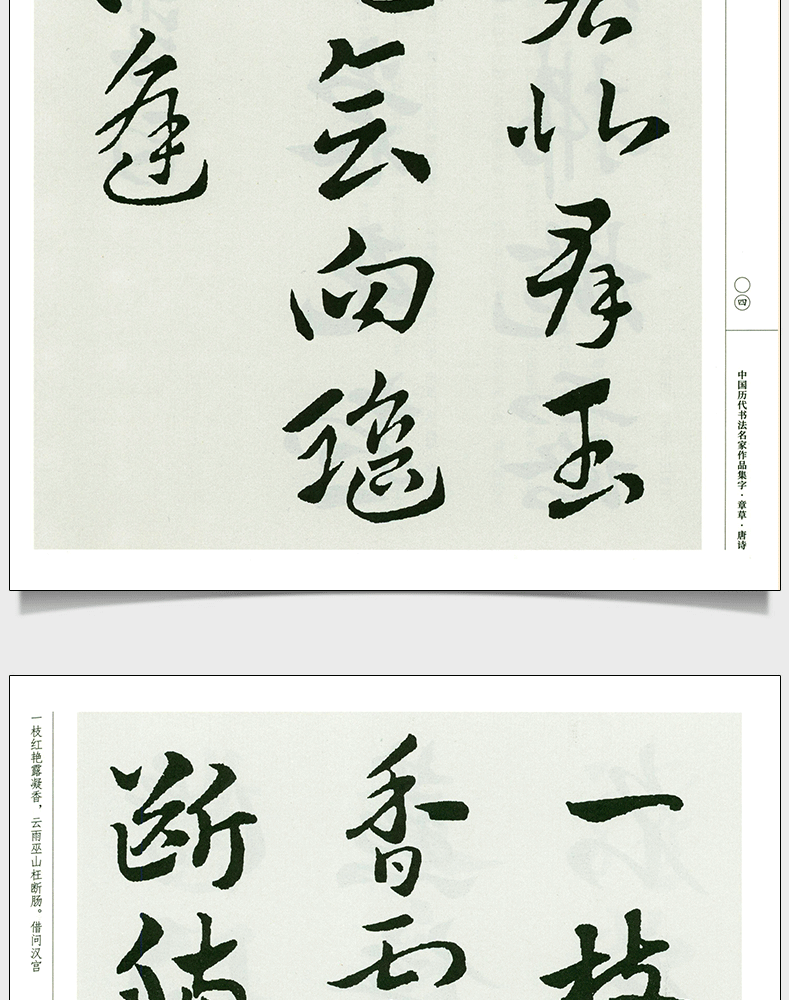 〇四
中国历代书法名家作品集字·章草·唐诗
非群玉
会向瑶
逢
一枝
香
断肠
一枝红艳露凝香，云雨巫山枉断肠。借问汉宫